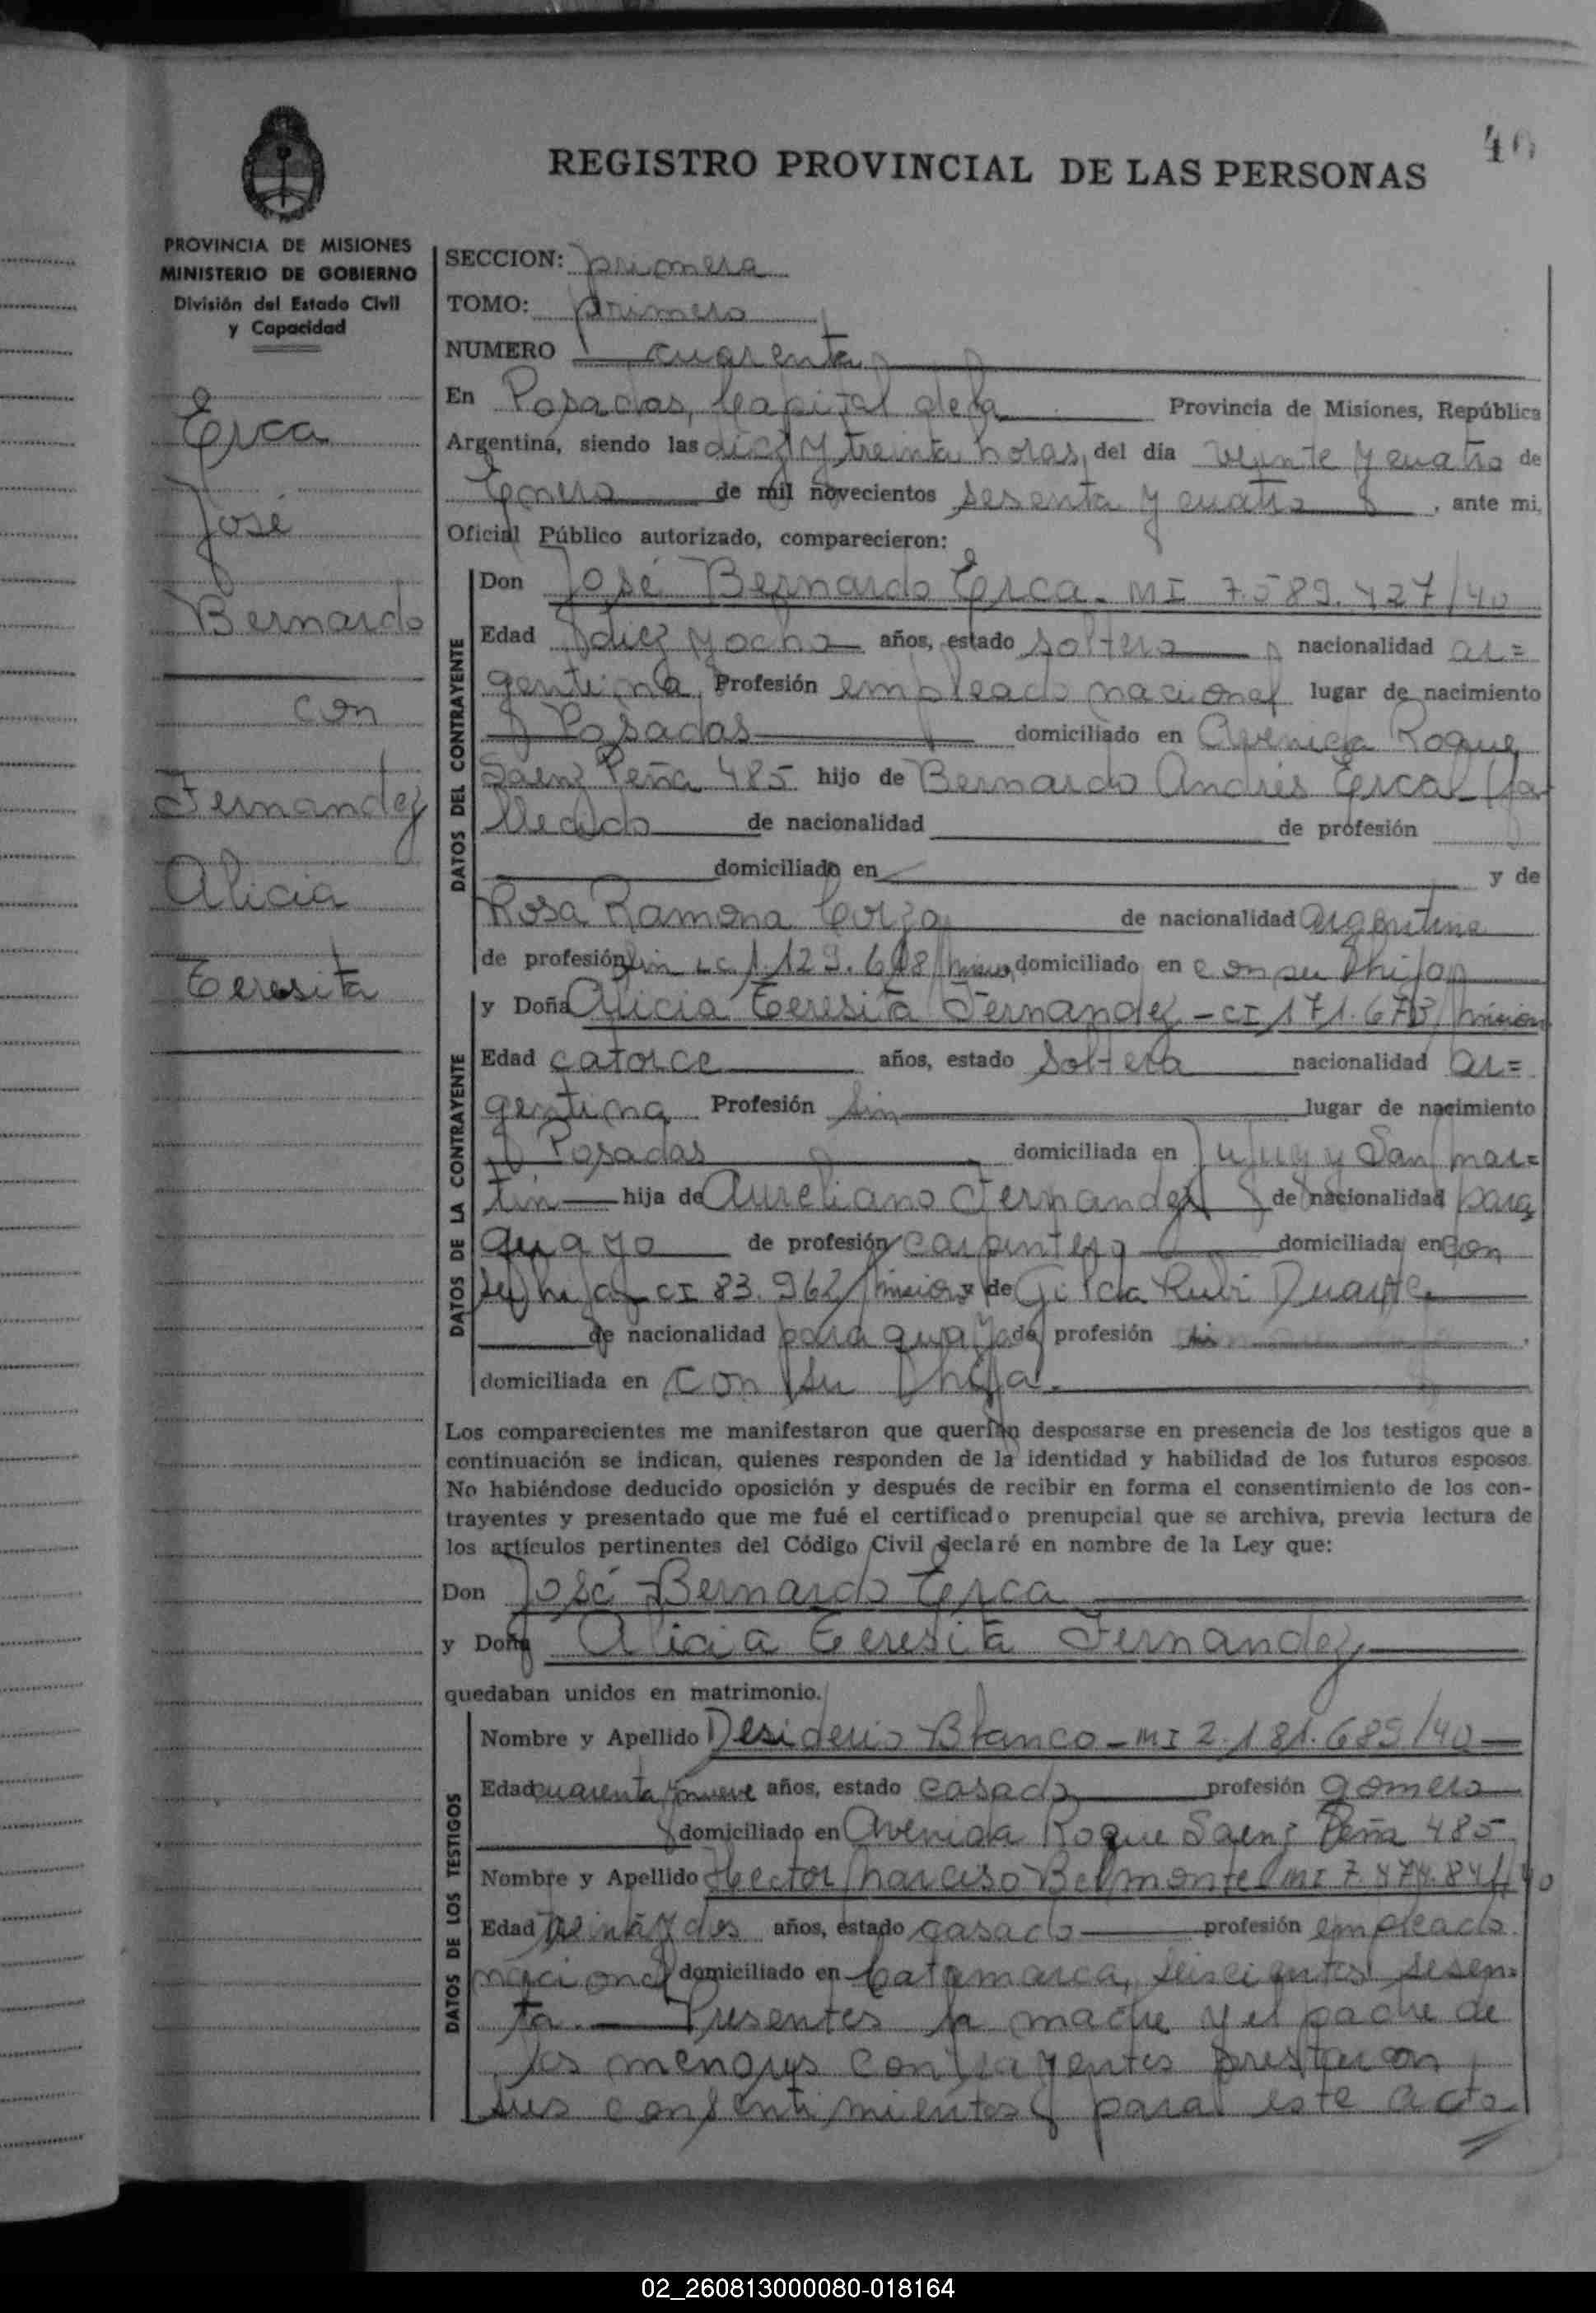 40
REGISTRO PROVINCIAL DE LAS PERSONAS
PROVINCIA DE MISIONES
MINISTERIO DE GOBIERNO
División del Estado Civil
y Capacidad
Erca
José
Bernardo
con
Fernandez
Alicia
Teresita
SECCION: primera
TOMO: primero
NUMERO cuarenta
En Posadas, Capital de la Provincia de Misiones, República
Argentina, siendo las diez y treinta horas, del día veinte y cuatro de
Enero de mil novecientos sesenta y cuatro, ante mi,
Oficial Público autorizado, comparecieron:
DATOS DEL CONTRAYENTE
Don José Bernardo Erca - MI 7.589.427/40
Edad diez y ocho años, estado soltero nacionalidad ar=
gentina, Profesión empleado nacional lugar de nacimiento
Posadas domiciliado en Avenida Roque
Saenz Peña 485 hijo de Bernardo Andrés Erca (fa
llecido de nacionalidad de profesión
domiciliado en y de
Rosa Ramona de nacionalidad argentina
de profesión sin LC 1.129.608/ domiciliado en con su hijo
DATOS DE LA CONTRAYENTE
y Doña Alicia Teresita Fernandez - CI 171.673/
Edad catorce años, estado soltera nacionalidad ar=
gentina Profesión sin lugar de nacimiento
Posadas domiciliada en Jujuy y San Mar=
tín hija de Aureliano Fernandez de nacionalidad para
guayo de profesión carpintero domiciliada en con
su hija CI 83.962/ y de Gilda Rubi Duarte
de nacionalidad paraguaya de profesión sin
domiciliada en con su hija.
Los comparecientes me manifestaron que querían desposarse en presencia de los testigos que a
continuación se indican, quienes responden de la identidad y habilidad de los futuros esposos.
No habiéndose deducido oposición y después de recibir en forma el consentimiento de los con-
trayentes y presentado que me fué el certificado prenupcial que se archiva, previa lectura de
los artículos pertinentes del Código Civil declaré en nombre de la Ley que:
Don José Bernardo Erca
y Doña Alicia Teresita Fernandez
quedaban unidos en matrimonio.
DATOS DE LOS TESTIGOS
Nombre y Apellido Desiderio Blanco - MI 2.181.689/40
Edad cuarenta y nueve años, estado casado profesión gomero
domiciliado en Avenida Roque Saenz Peña 485
Nombre y Apellido Hector Narciso Belmonte MI 7.474.841/40
Edad treinta y dos años, estado casado profesión empleado
nacional domiciliado en Catamarca, seiscientos sesen=
ta. Presentes la madre y el padre de
los menores contrayentes prestaron
sus consentimientos para este acto
02_260813000080-018164